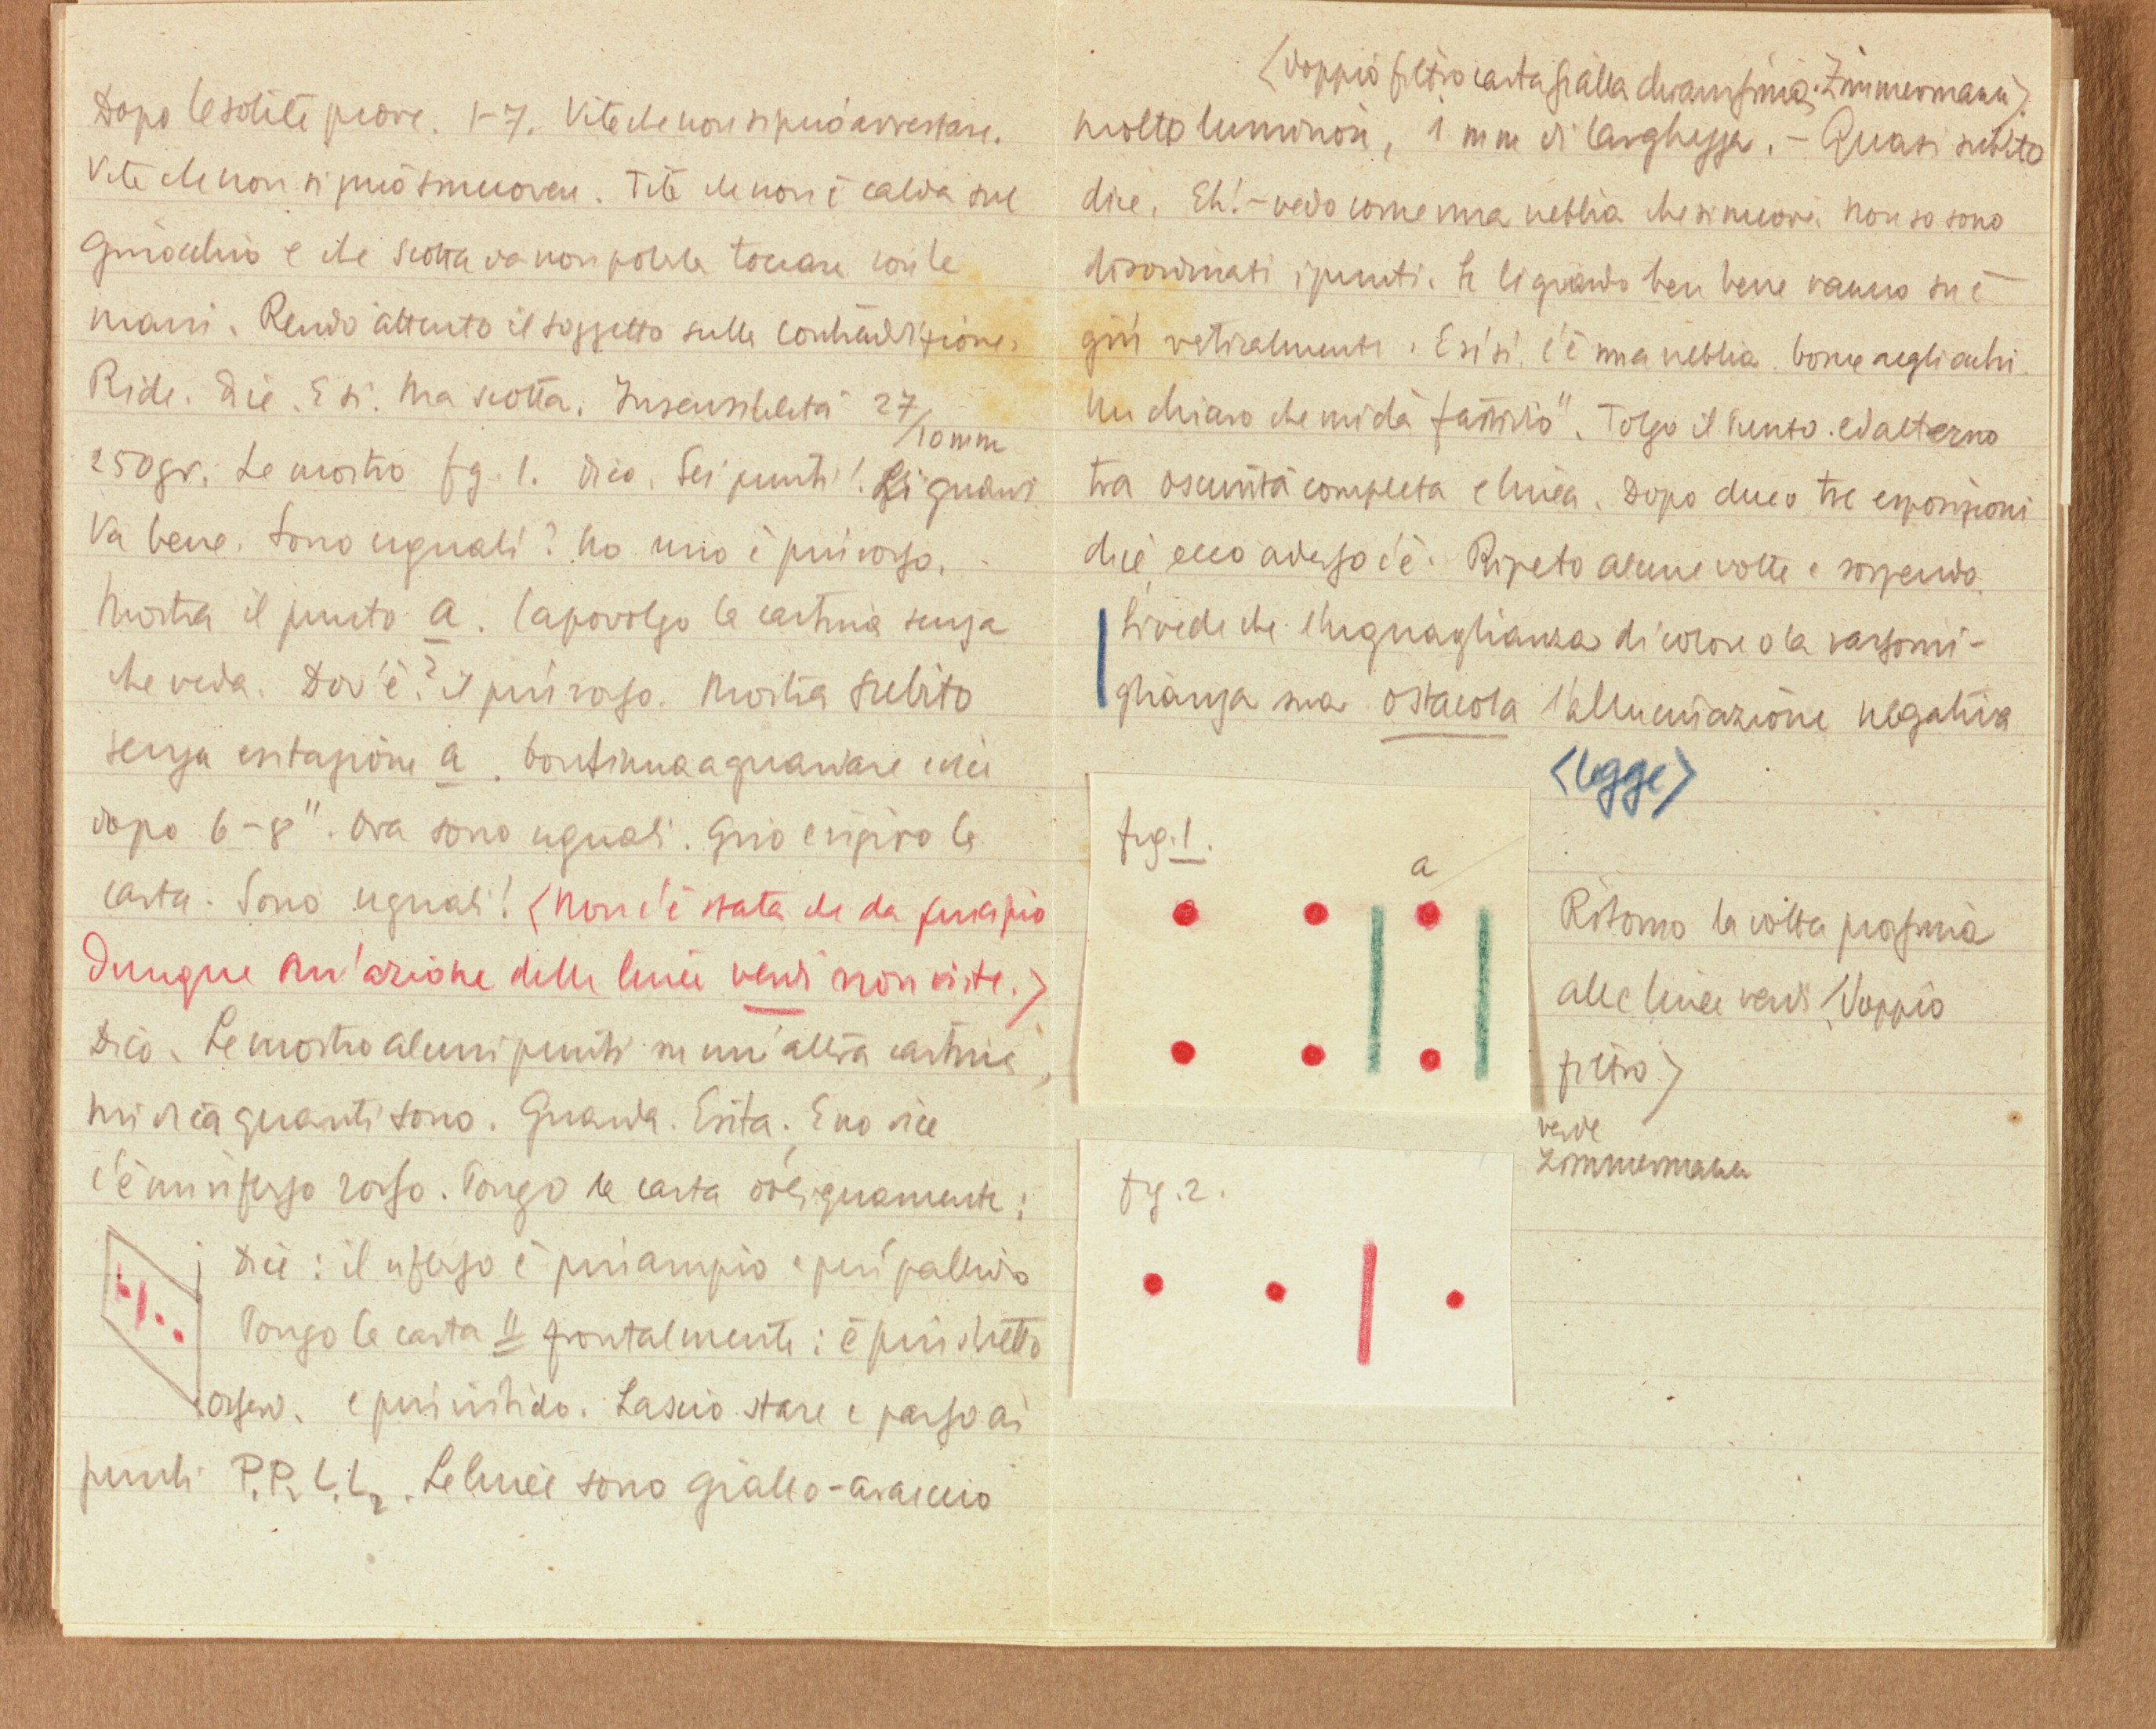 Dopo le solite prove. 1-7. Vite che non si può arrestare.
Vite che non si può smuovere. Tite che non è calda sul
ginocchio e che scotta da non poterla toccare con le
mani. Rendo attento il soggetto sulla contraddizione.
Ride. Dice. E sì. Ma scotta. Insensibilità 27/10 mm
250 gr. Le mostro fg. 1. Dico. Sei punti! Li guardi
Va bene. Sono uguali? No uno è più rosso.
Mostra il punto a. Capovolgo la cartina senza
che veda. Dov'è? il più rosso. Mostra subito
senza esitazione a. Continua a guardare e dice
dopo 6-8". Ora sono uguali. Giro e rigiro la
carta. Sono uguali! <Non c'è stata che da principio
dunque un'azione delle linee verdi non viste.>
Dico. Le mostro alcuni punti su un'altra cartina,
mi dica quanti sono. Guarda. Esita. E no dice
c'è un riflesso rosso. Pongo la carta obliquamente:
Dice: il riflesso è più ampio e più pallido
Pongo la carta frontalmente: è più stretto
osservo. e più nitido. Lascio stare e passo ai
punti P, P2 L, L2. Le linee sono giallo-arancio
<doppio filtro carta gialla Zimmermann>
molto luminosi, 1 mm di larghezza. - Quasi subito
dice. Eh! - vedo come una nebbia che si muove. Non so sono
disordinati i punti. Se li guardo ben bene vanno su e
giù verticalmente. E sì sì. c'è una nebbia. Come negli occhi.
Un chiaro che mi dà fastidio". Tolgo il punto. ed alterno
tra oscurità completa e linea. Dopo due o tre esposizioni
dice, ecco adesso c'è. Ripeto alcune volte e sospendo.
Si vede che l'uguaglianza di colore o la rassomi-
glianza sua ostacola l'allucinazione negativa
<legge>
fig. 1.
a
Ritorno la volta prossima
alle linee verdi <doppio
filtro>
verde
Zimmermann
fg. 2.